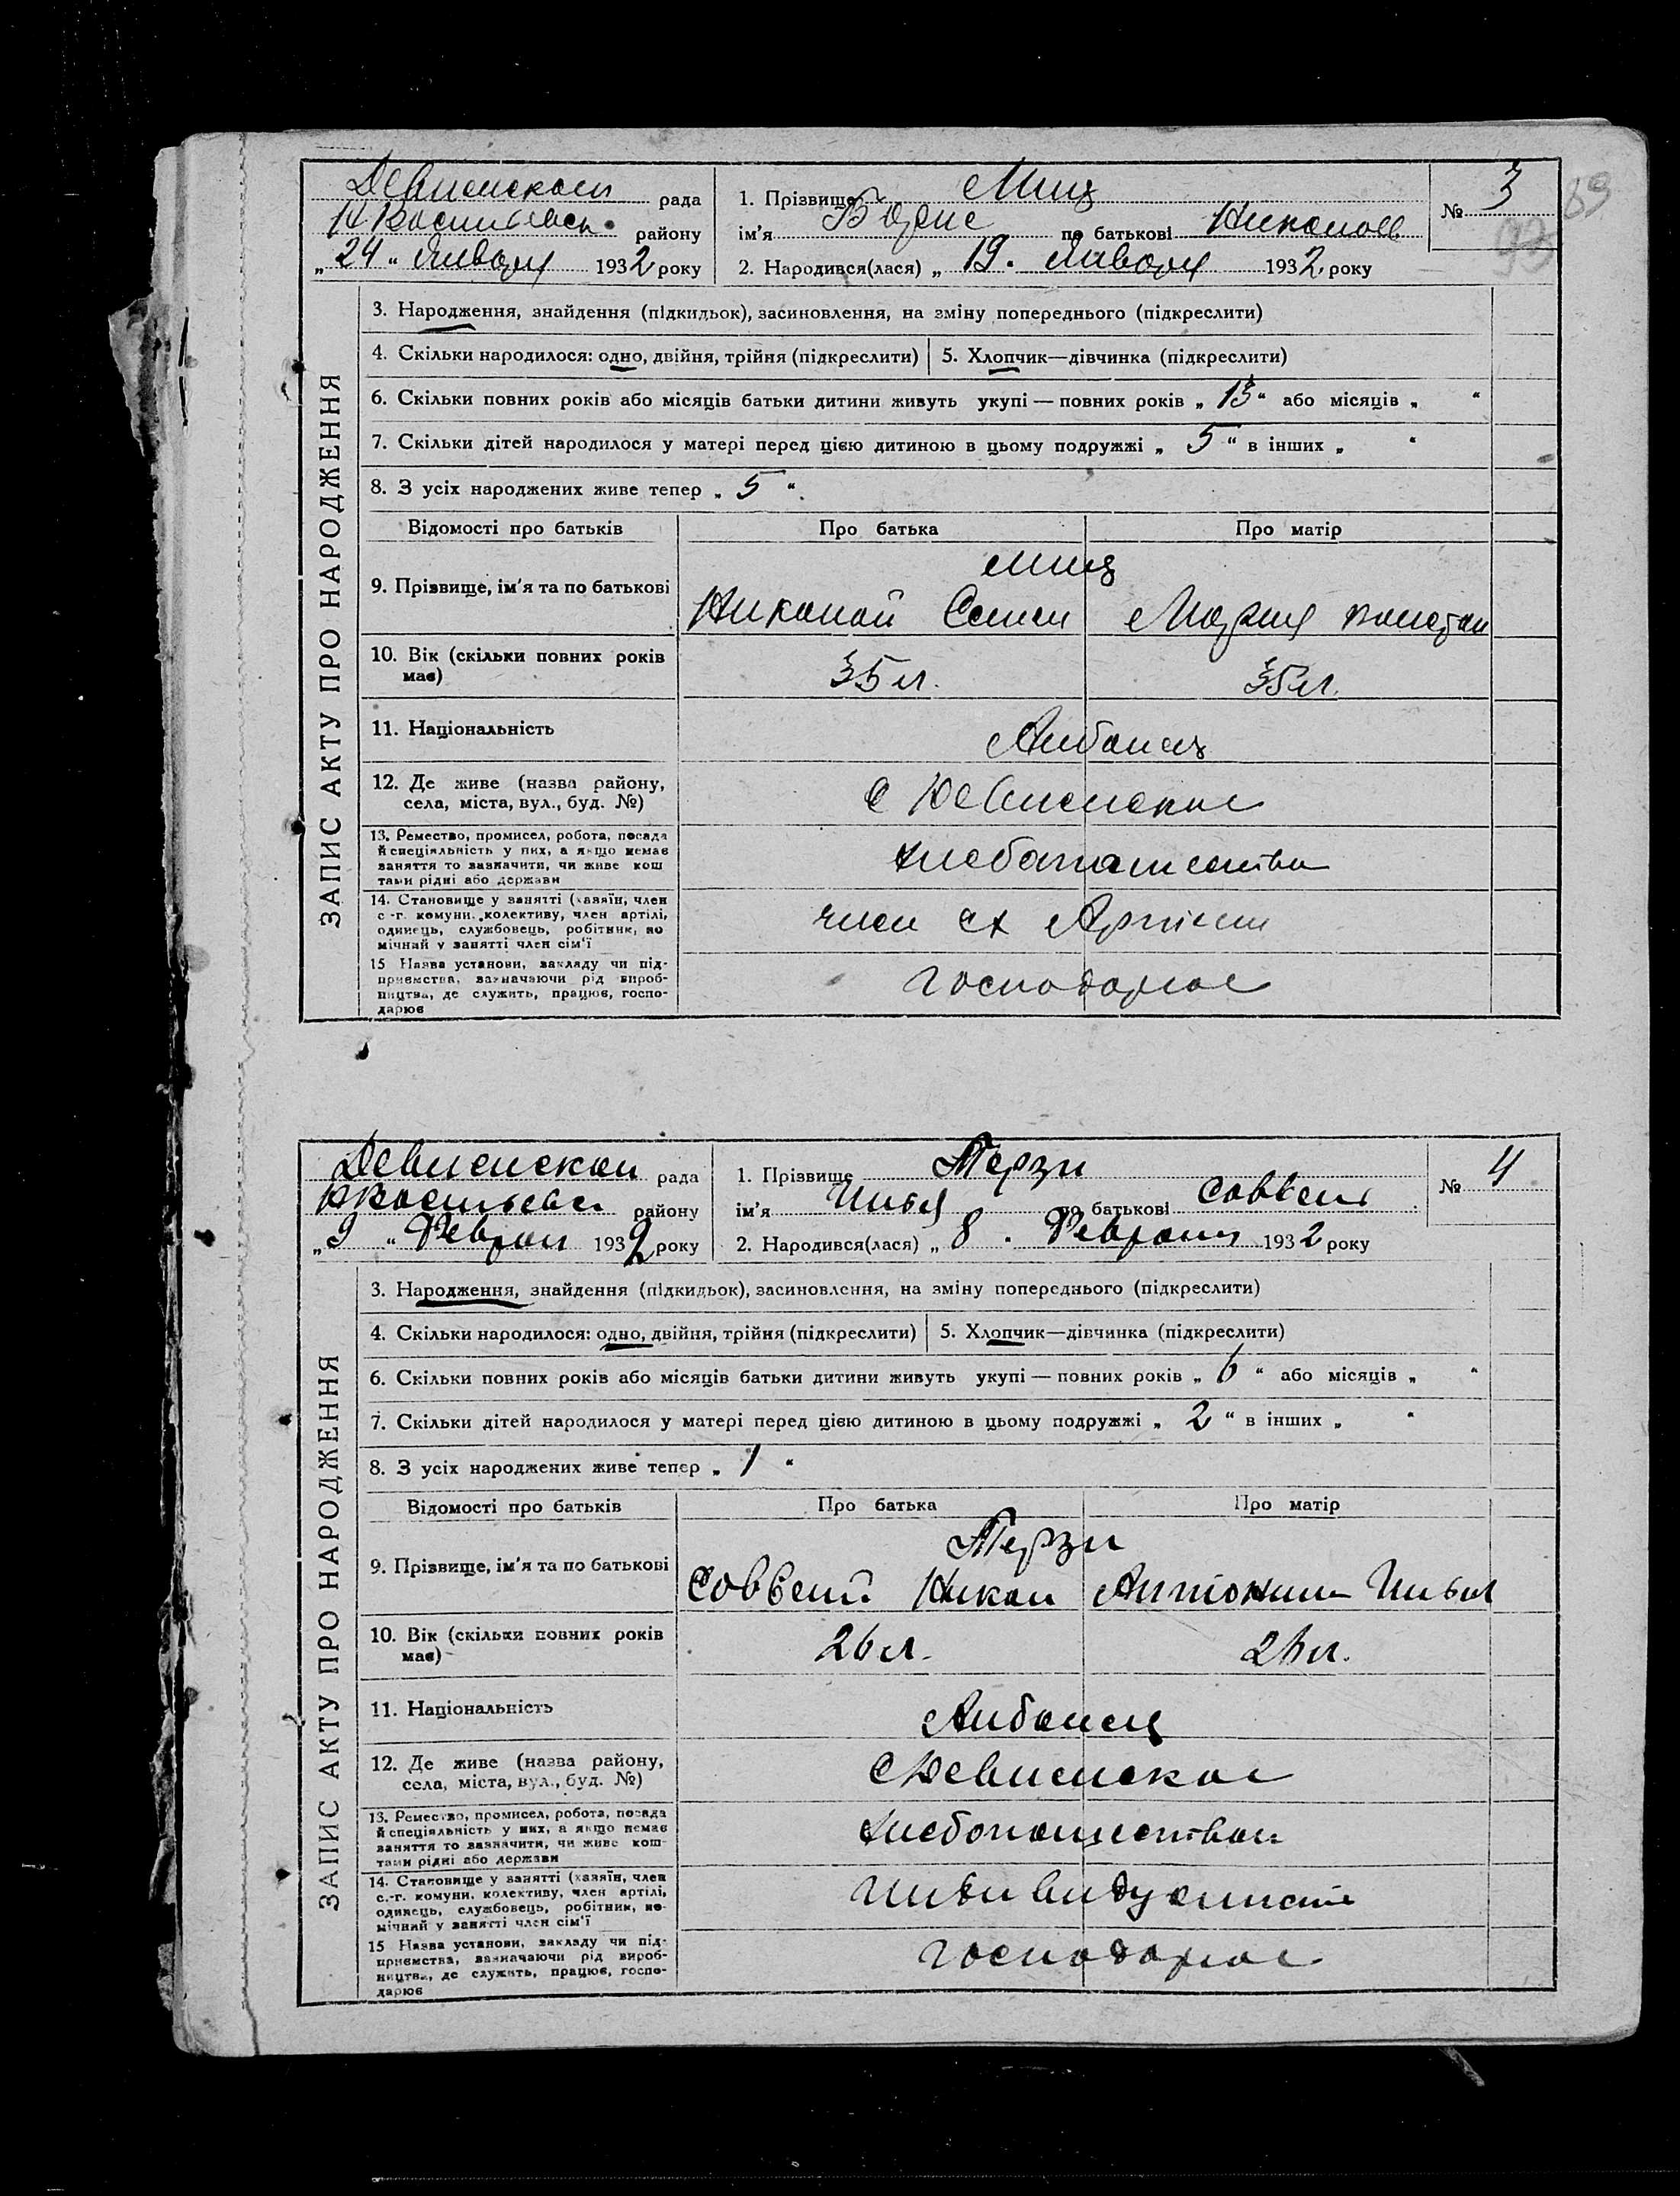 Девненской рада
Н Васильевск. району
„24“ Января 1932 року
1. Прізвище Миц
ім'я Борис по батькові Николов
2. Народився(лася) „19. Января 1932 року
№ 3
89
93
ЗАПИС АКТУ ПРО НАРОДЖЕННЯ
3. Народження, знайдення (підкидьок), засиновлення, на зміну попереднього (підкреслити)
4. Скільки народилося: одно, двійня, трійня (підкреслити) 5. Хлопчик—дівчинка (підкреслити)
6. Скільки повних років або місяців батьки дитини живуть укупі — повних років „13“ або місяців „ “
7. Скільки дітей народилося у матері перед цією дитиною в цьому подружжі „5“ в інших „ “
8. З усіх народжених живе тепер „5“
Відомості про батьків Про батька Про матір
9. Прізвище, ім'я та по батькові
Миц
Николай Семен Мария Констан
10. Вік (скільки повних років має) 35 л. 35 л.
11. Національність Албанец
12. Де живе (назва району,
села, міста, вул., буд. №)
С Девненское
13. Ремество, промисел, робота, посада
й спеціяльність у них, а якщо немає
заняття то зазначити, чи живе кош
тами рідні або держави
Хлебопашество
14. Становище у занятті (хазяїн, член
с.-г. комуни, колективу, член артілі,
одинець, службовець, робітник, по
мічний у занятті член сім'ї
член сх Артели
15 Назва установи, закладу чи під-
приємства, зазначаючи рід вироб-
ництва, де служить, працює, госпо-
дарює
господарює
Девненской рада
Н Васильевск району
„9“ Феврал 1932 року
1. Прізвище Терзи
ім'я Илья по батькові Саввел
2. Народився(лася) „8. Февраля 1932 року
№ 4
ЗАПИС АКТУ ПРО НАРОДЖЕННЯ
3. Народження, знайдення (підкидьок), засиновлення, на зміну попереднього (підкреслити)
4. Скільки народилося: одно, двійня, трійня (підкреслити) 5. Хлопчик—дівчинка (підкреслити)
6. Скільки повних років або місяців батьки дитини живуть укупі — повних років „6“ або місяців „ “
7. Скільки дітей народилося у матері перед цією дитиною в цьому подружжі „2“ в інших „ “
8. З усіх народжених живе тепер „1“
Відомості про батьків Про батька Про матір
9. Прізвище, ім'я та по батькові
Терзи
Саввелий Никол Антонина Ильи
10. Вік (скільки повних років має) 26 л. 26 л.
11. Національність Албанец
12. Де живе (назва району,
села, міста, вул., буд. №)
С Девненское
13. Ремество, промисел, робота, посада
й спеціяльність у них, а якщо немає
заняття то зазначити, чи живе кош-
тами рідні або держави
Хлебопашеством
14. Становище у занятті (хазяїн, член
с.-г. комуни, колективу, член артілі,
одинець, службовець, робітник, по-
мічний у занятті член сім'ї
Индивидуалист
15 Назва установи, закладу чи під-
приємства, зазначаючи рід вироб-
ництва, де служить, працює, госпо-
дарює
господарює